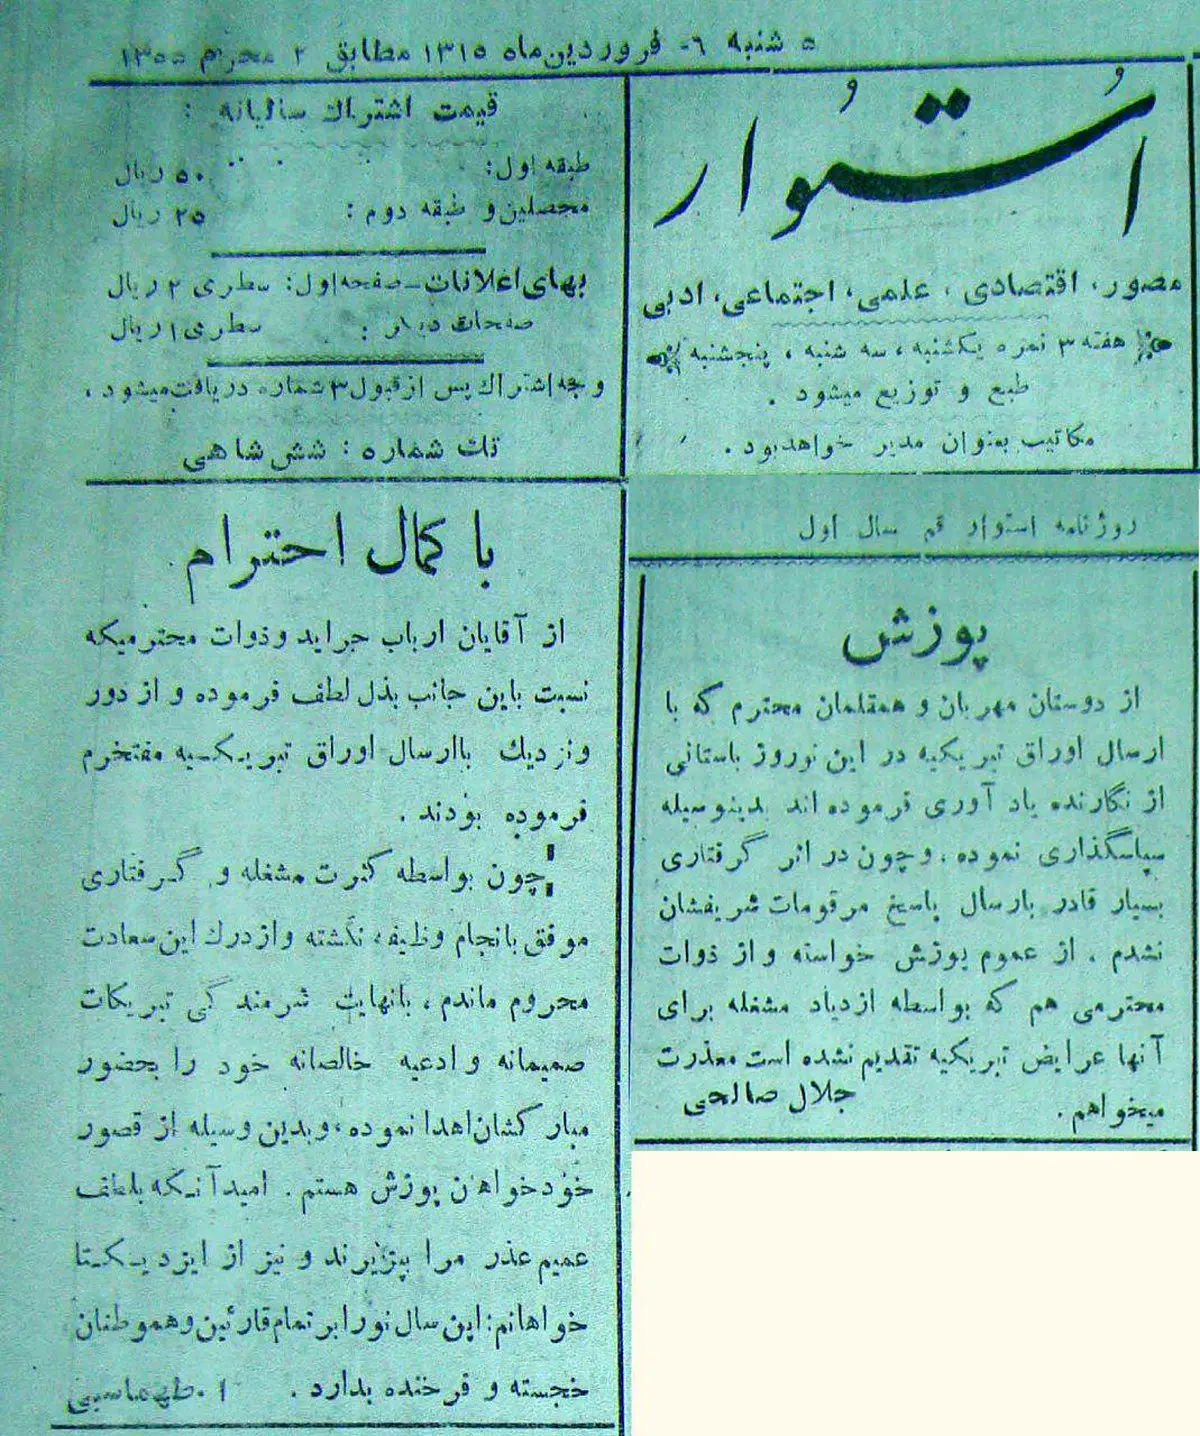 ۵ شنبه ۶- فروردین ماه ۱۳۱۵ مطابق ۲ محرم ۱۳۵۵
اُستوُار
مصور، اقتصادی، علمی، اجتماعی، ادبی
هفته ۳ نمره یکشنبه، سه شنبه، پنجشنبه
طبع و توزیع میشود.
مکاتیب بعنوان مدیر خواهد بود.
قیمت اشتراک سالیانه :
طبقه اول: ۵۰ ریال
محصلین و طبقه دوم : ۲۵ ریال
بهای اعلانات - صفحه اول: سطری ۲ ریال
صفحات دیگر : سطری ۱ ریال
وجه اشتراک پس از قبول ۳ شماره دریافت میشود،
تک شماره : شش شاهی
روزنامه استوار قم سال اول
پوزش
از دوستان مهربان و همقلمان محترم که با
ارسال اوراق تبریکیه در این نوروز باستانی
از نگارنده یاد آوری فرموده اند بدینوسیله
سپاسگذاری نموده، و چون در اثر گرفتاری
بسیار قادر بارسال پاسخ مرقومات شریفشان
نشدم . از عموم پوزش خواسته و از ذوات
محترمی هم که بواسطه ازدیاد مشغله برای
آنها عرایض تبریکیه تقدیم نشده است معذرت
میخواهم. جلال صالحی
با کمال احترام
از آقایان ارباب جراید و ذوات محترمیکه
نسبت باین جانب بذل لطف فرموده و از دور
و نزدیک باارسال اوراق تبریکیه مفتخرم
فرموده بودند .
چون بواسطه کثرت مشغله و گرفتاری
موفق بانجام وظیفه نگشته و از درک این سعادت
محروم ماندم، بانهایت شرمندگی تبریکات
صمیمانه و ادعیه خالصانه خود را بحضور
مبارکشان اهدا نموده، و بدین وسیله از قصور
خود خواهان پوزش هستم. امید آنکه بلطف
عمیم عذر مرا بپذیرند و نیز از ایزد یکتا
خواهانم: این سال نو را بر تمام قارئین و هموطنان
خجسته و فرخنده بدارد . ا . طهماسبی